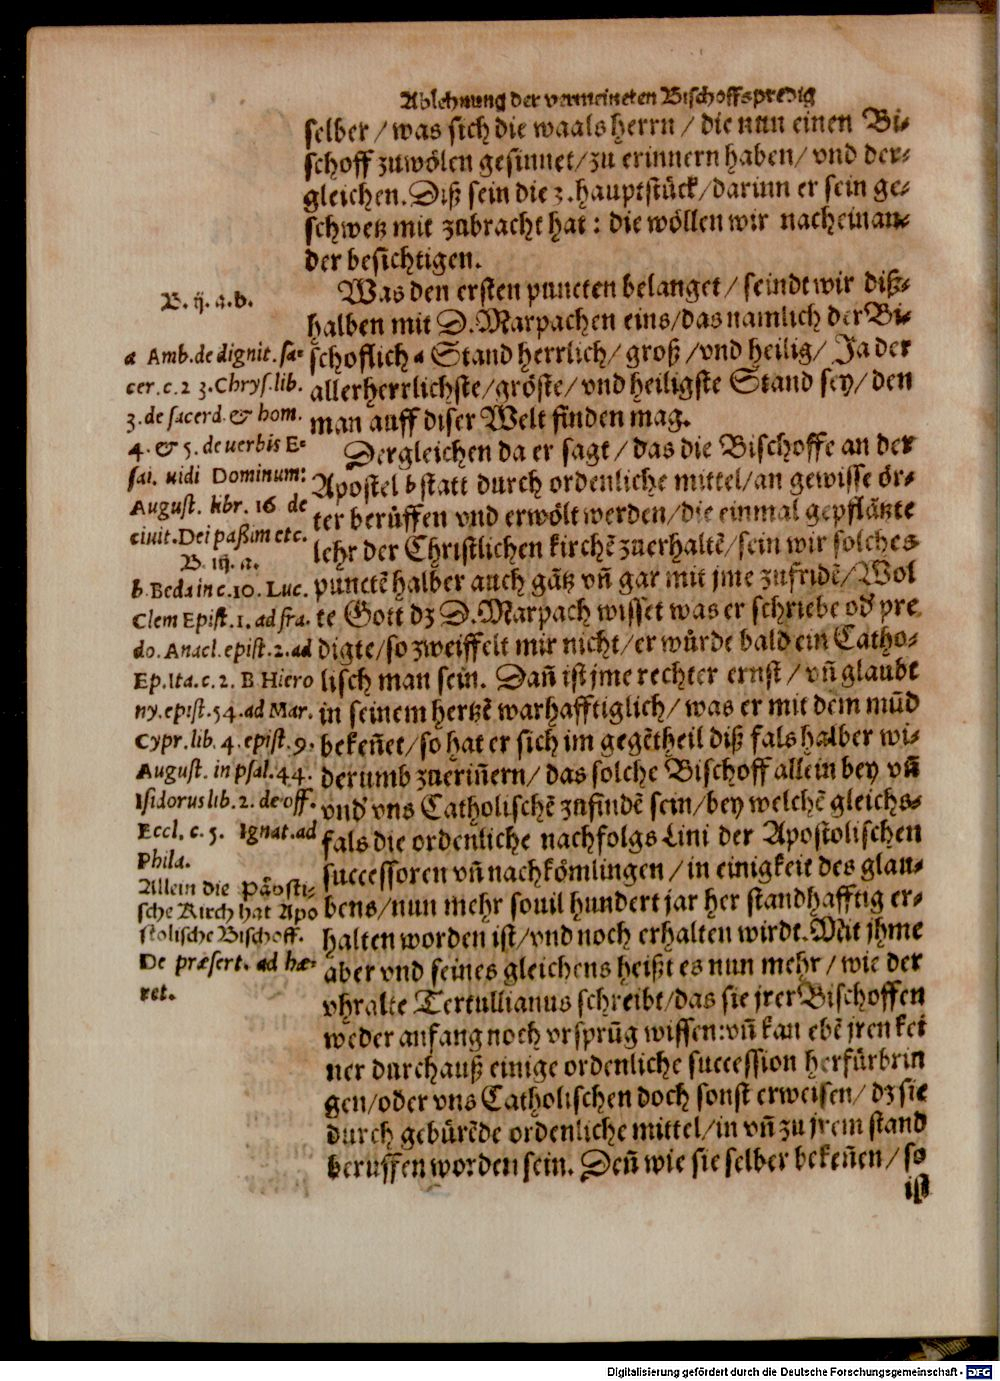 Ablehnung der vermeineten Bischoffspredig
selber / was sich die waals herrn / die nun einen Bi-
schoff zuwölen gesinnet / zu erinnern haben / vnd der-
gleichen. Diß sein die 3. hauptstück / darinn er sein ge-
schwetz mit zubracht hat : die wöllen wir nacheinan-
der besichtigen.
Was den ersten puncten belanget / seindt wir diß-
halben mit D. Marpachen eins / das namlich der Bi-
schoflich a Stand herrlich / groß / vnd heilig / Ja der
allerherrlichste / gröste / vnd heiligste Stand sey / den
man auff diser Welt finden mag.
Dergleichen da er sagt / das die Bischoffe an der
Apostel b statt durch ordenliche mittel / an gewisse ör-
ter berüffen vnd erwölt werden / die einmal gepfläntzte
lehr der Christlichen kirchẽ zuerhaltẽ / sein wir solches
punctẽ halber auch gãtz vñ gar mit jme zufridẽ / Wol
te Gott dz D. Marpach wisset was er schriebe od' pre
digte / so zweiffelt mir nicht / er würde bald ein Catho-
lisch man sein. Dañ ist jme rechter ernst / vñ glaubt
in seinem hertzẽ warhafftiglich / was er mit dem mũd
bekeñet / so hat er sich im gegẽtheil diß fals halber wi-
derumb zueriñern / das solche Bischoff allein bey vñ
vnd' vns Catholischẽ zufindẽ sein / bey welchẽ gleichs-
fals die ordenliche nachfolgs Lini der Apostolischen
successoren vñ nachkömlingen / in einigkeit des glau-
bens / nun mehr souil hundert jar her standhafftig er-
halten worden ist / vnd noch erhalten wirdt. Mit jhme
aber vnd seines gleichens heißt es nun mehr / wie der
vhralte Tertullianus schreibt / das sie jrer Bischoffen
weder anfang noch vrsprũg wissen: vñ kan ebẽ jren kei
ner durchauß einige ordenliche succession herfürbrin
gen / oder vns Catholischen doch sonst erweisen / dz sie
durch gebürẽde ordenliche mittel / in vñ zu jrem stand
beruffen worden sein. Deñ wie sie selber bekeñen / so
ist
B. ij. a. b.
a Amb. de dignit. sa-
cer. c. 2 3. Chrys. lib.
3. de sacerd. & hom.
4. & 5. de uerbis E-
sai. uidi Dominum:
August. libr. 16 de
ciuit. Dei paßim etc.
B. iij. a.
b Beda in c. 10. Luc.
Clem Epist. 1. ad fra.
do. Anacl. epist. 2. ad
Ep. Ita. c. 2. B Hiero
ny. epist. 54. ad Mar.
Cypr. lib. 4. epist. 9.
August. in psal. 44.
Isidorus lib. 2. de off.
Eccl. c. 5. Ignat. ad
Phila.
Allein die Päpsti-
sche Kirch hat Apo
stolische Bischoff.
De præsert. ad hæ-
ret.
Digitalisierung gefördert durch die Deutsche Forschungsgemeinschaft - DFG